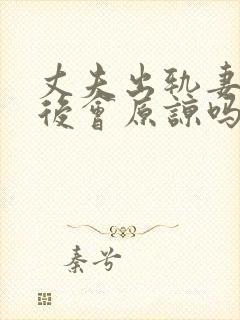 丈夫出轨妻
後會原諒吗
秦兮